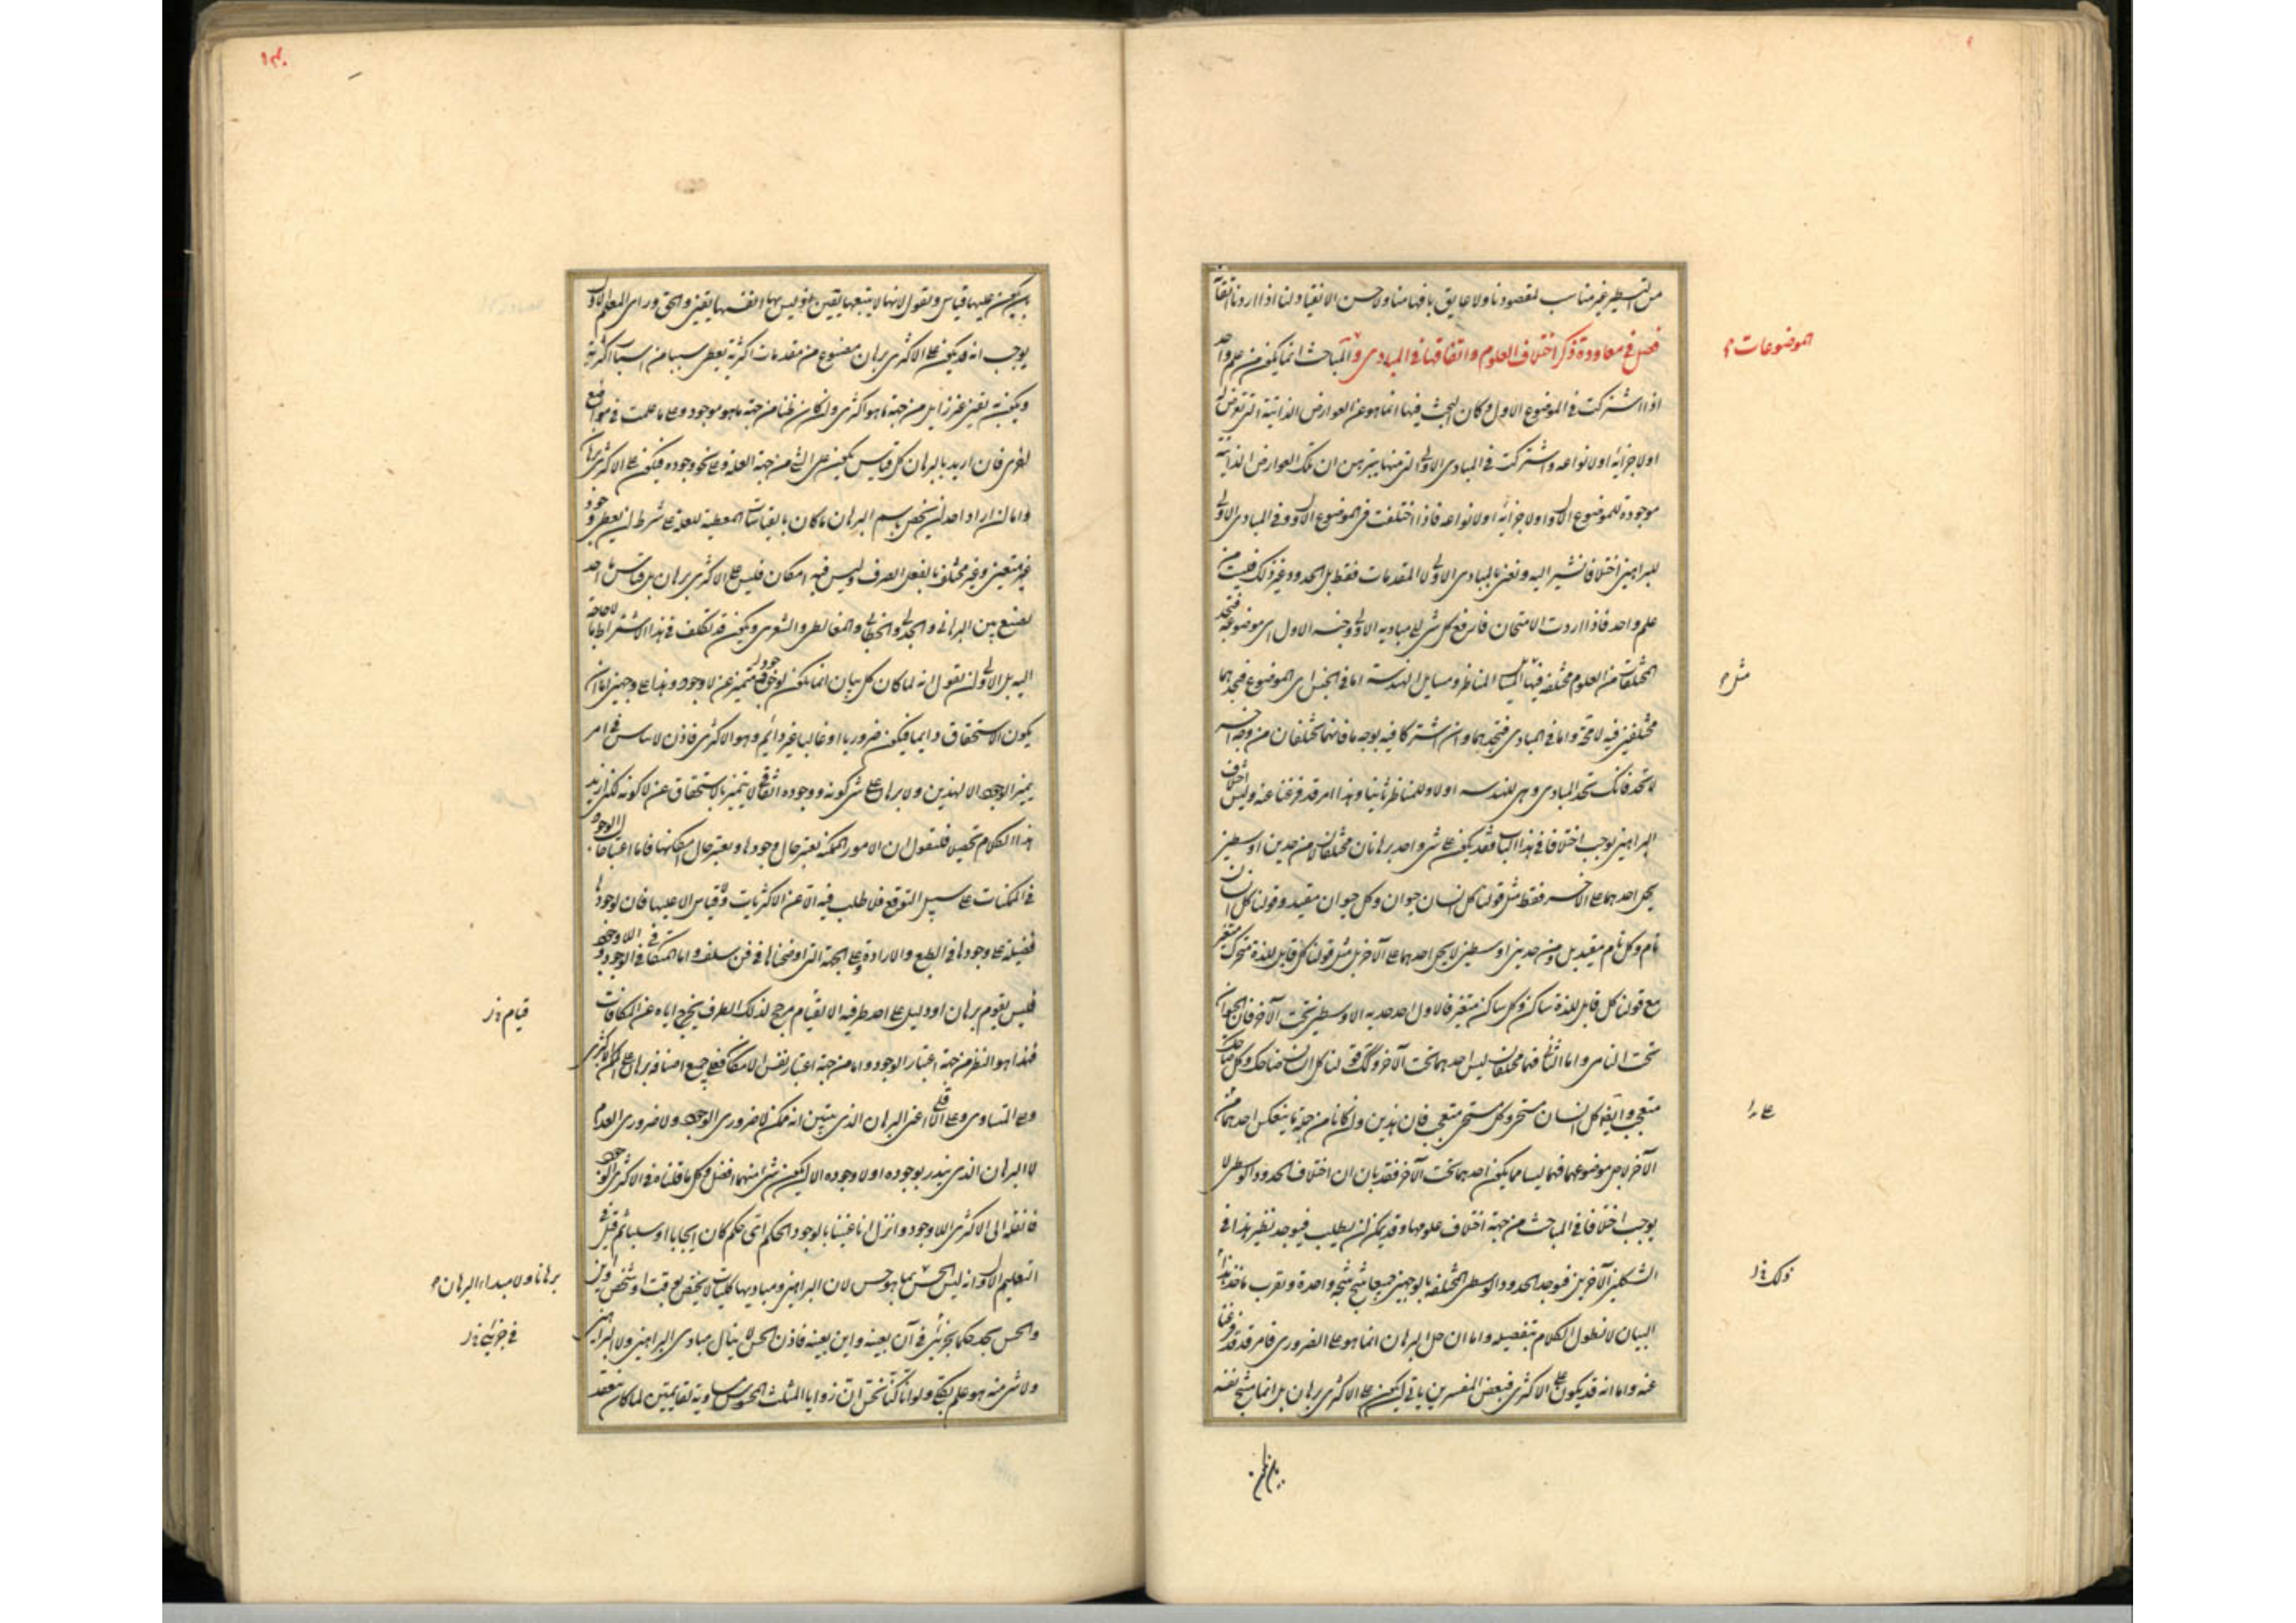 من التسطير غير مناسب لمقصودنا ولا عايق بافهامنا ولا حسن الانقياد لنا اذا اردنا
فصل في معاودة ذكر اختلاف العلوم واتفاقها في المبادى و المباحث انما يكون من علم واحد
الموضوعات
اذا اشتركت في الموضوع الاول وكان البحث فيها انما هو عن العوارض الذاتية التى تعرض له
او لاجزائه او لانواعه واشتركت في المبادى الاولى التى منها يتبرهن ان تلك العوارض الذاتية
موجودة للموضوع الاول او لاجزائه او لانواعه فاذا اختلفت في الموضوع الاول وفي المبادى الاولى
للبراهين اختلافا نشير اليه ونعنى بالمبادى الاولى لا المقدمات فقط بل الحدود وغير ذلك فليست من
علم واحد فاذا اردت الامتحان فارفع كل شى الى مبادية الاولى وجنسه الاول اى موضوعه فتجد
المختلفات من العلوم مختلفة فيها المناظر ومسايل الهندسة اما في الجنس اى الموضوع فتجدهما
مثل
مختلفين فيه لا محة واما في المبادى فتجدهما وان اشتركا فيه بوجه ما فانهما مختلفان من وجه اخر
لا تتحد فانك تتحد المبادى وهى للهندسه اولا وللمناظر ثانيا وهذا امر قد فرغنا عنه وليس اختلاف
البراهين يوجب اختلافا في هذا الباب فقد يكون على شى واحد برهانان مختلفان من حدين اوسطين
يحمل احدهما على الاخر فقط مثل قولنا كل انسان حيوان وكل حيوان مقيد وقولنا كل انسان
نام وكل نام مقيد بل ومن حدين اوسطين لا يحمل احدهما على الآخر بل مثل قولنا كل قابل للذة متحرك
مع قولنا كل قابل للذة ساكن وكل ساكن متغير فالاول احد حديه الاوسطين تحت الآخر فان الحيوان
تحت النامى واما الثانى فهما مختلفان ليس احدهما تحت الآخر وكك قولنا كل انسان ضاحك وكل ضاحك
متعجب وايضا كل انسان مستحى وكل مستحى متعجب فان هذين وان كانا من جهة ما ينعكس احدهما
على
الآخر لاجل موضوعهما فهما ليسا مما يكون احدهما تحت الآخر فقد بان ان اختلاف الحدود الوسطى لا
يوجب اختلافا في المباحث من جهة اختلاف علومها وقد يمكن ان يطلب فيوجد نظير هذا في
الشكلين الآخرين فتوجد الحدود الوسطى المختلفة بالوجهين جميعا تنتج نتيجة واحدة ونقرب ماخذ
ذلك
البيان لا نطول الكلام بتفصيله واما ان جل البرهان انما هو على الضرورى فامر قد فرغنا
عنه واما انه قد يكون على الاكثرى فبعض المفسرين يابى ان يكون على الاكثرى برهان بل انما ينتج نفسه
بان يكون عليها قياس ونقول لانها لا يتبعها يقين اذ ليس بها انفسها يقين والحق وراى المعلم الاول
يوجب انه قد يكون على الاكثرى برهان مصنوع من مقدمات اكثرية يعطى سببا من اسباب اكثرية
ويكون به يقين غير زايل من جهة ما هو اكثرى وان كان ظنا من جهة ما هو موجود وعلى ما علمت في مواضع
اخرى فان اريد بالبرهان كل قياس يكون على الشى من جهة العلة وعلى نحو وجوده فيكون على الاكثرى برهان
واما ان اراد احد ان يخص باسم البرهان ما كان بالقياسات المعطية للعلة على شرط ان يعطى وجود
غير متعين وغير مختلف بالفعل الصرف وليس فيه امكان فليس على الاكثرى برهان بل قياس ما احد
لصنع بين البرهانى والجدلى والخطابى والمغالطى والشعرى ويكون قد تكلف في هذا الاشتراط ما لا حاجة
اليه بل الاولى ان نقول انه لما كان كل بيان انما يكون لوجود متميز عن لاوجود وهذا على وجهين اما ان
يكون الاستحقاق دايما فيكون ضروريا او غالبا غير دائم وهو الاكثرى فاذن لا قياس في امر
يميز الوجود الا لهذين ولا برهان على شى كونه ووجوده اتفاقى لا يتميز بالاستحقاق عن لا كونه لكن نريد
هذا الكلام تحصيلا فنقول ان الامور الممكنة تعتبر حال وجودها وتعتبر حال امكانها فاما اعتبار حال الوجود
في الممكنات على سبيل التوقع فلا طلب فيه الا عن الاكثريات ولا قياس الا عليها فان لوجودها
فضيلة على لا وجودها في الطبع والارادة وعلى الجهة التى اوضحناها في فن سلف واما المتكافى الوجود واللاوجود
فليس يقوم برهان او دليل على احد طرفيه الا بقيام مرجح لذلك الطرف يخرج اياه عن المكافات
قيام
فهذا هو النظر من جهة اعتبار الوجود واما من جهة اعتبار نفس الامكان فعلى جميع اصنافه برهان على الممكن الاكثرى
وعلى المتساوى وعلى الاقلى اعنى البرهان الذى يتبين انه ممكن لا ضرورى الوجود ولا ضرورى العدم
لا البرهان الذى ينذر بوجوده او لاوجوده الا ان يكون شى منهما افضل وكل ما قلناه في الاكثرى الوجود
فانقله الى الاكثرى اللاوجود وانزل انا عنينا بالوجود الحكم اى حكم كان ايجابا او سلبا ثم قيل في
التعليم الاول انه ليس الحس بما هو حس لان البراهين ومباديها كليات لا يختص بوقت وشخص واين
برهانا ولا مبداء البرهان
والحس يجد حكما بجزئى في آن بعينه واين بعينه فاذن الحس لا ينال مبادى البراهين ولا البراهين
في جزئى
ولا شى منه هو علم بكلى ولو انا كنا نحس ان زوايا المثلث المحسوس مساوية لقايمتين لما كان ينعقد
بان يكون